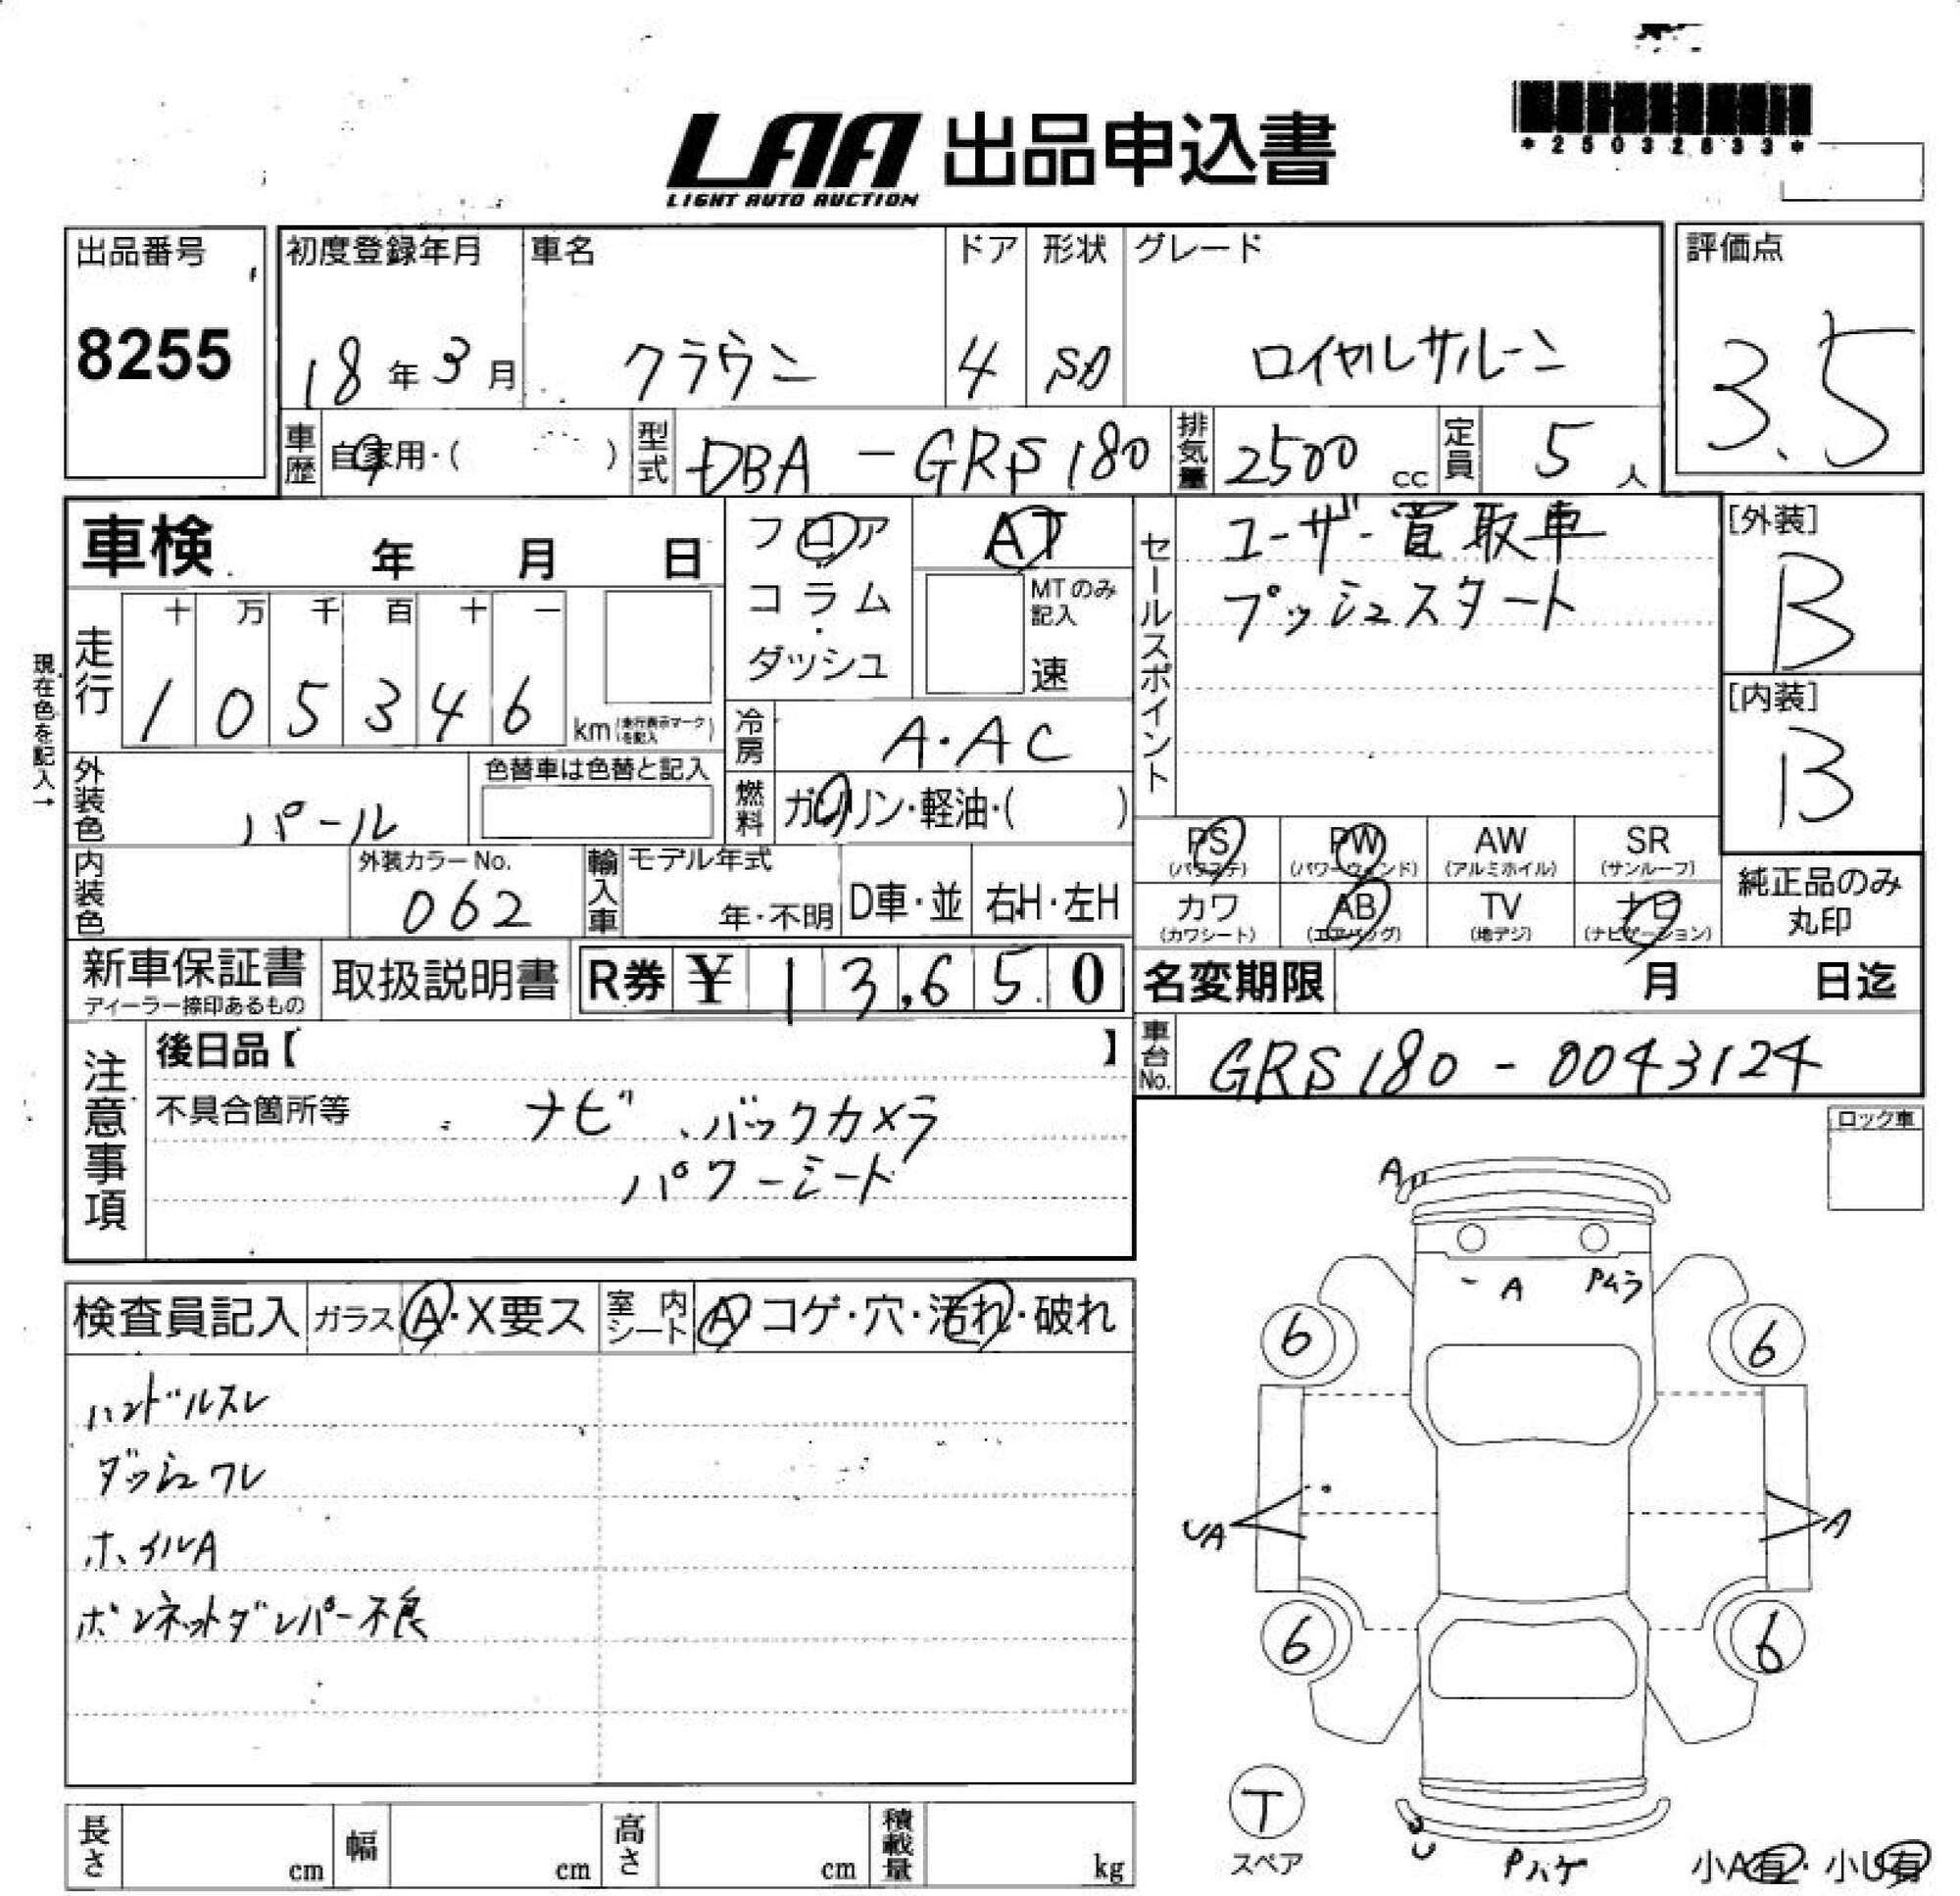 *25032833*
LAA 出品申込書
LIGHT AUTO AUCTION
出品番号
8255
初度登録年月
18年3月
車名
クラウン
ドア
4
形状
SD
グレード
ロイヤルサルーン
評価点
3.5
車歴
自家用・( )
型式
DBA-GRS180
排気量
2500 cc
定員
5人
車検 年 月 日
フロア
コラム
・
ダッシュ
AT
MTのみ
記入
速
セールスポイント
ユーザー買取車
プッシュスタート
[外装]
B
[内装]
B
現在色を記入→
走行
十 万 千 百 十 一
1 0 5 3 4 6
km(走行表示マークを記入)
冷房
A・AC
外装色
パール
色替車は色替と記入
燃料
ガソリン・軽油・( )
PS
(パワステ)
PW
(パワーウィンド)
AW
(アルミホイル)
SR
(サンルーフ)
カワ
(カワシート)
AB
(エアバッグ)
TV
(地デジ)
ナビ
(ナビゲーション)
純正品のみ
丸印
内装色
外装カラーNo.
062
輸入車
モデル年式
年・不明
D車・並
右H・左H
新車保証書
ディーラー捺印あるもの
取扱説明書
R券 ¥ 13,650
名変期限 月 日迄
注意事項
後日品【 】
不具合箇所等
ナビ、バックカメラ
パワーシード
車台No.
GRS180-0043124
ロック車
A
A
Pムラ
6
6
UA
A
6
6
T
スペア
U
Pハゲ
小A有・小U有
検査員記入
ガラス A・X要ス
室内シート A コゲ・穴・汚れ・破れ
ハンドルスレ
ダッシュワレ
ホイルA
ボンネットダンパー不良
長さ cm
幅 cm
高さ cm
積載量 kg